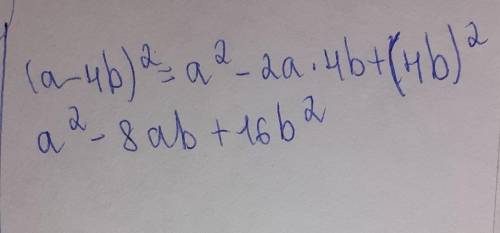 (a-4b)²=a²-2a·4b+(4b)²
a²-8ab+16b²